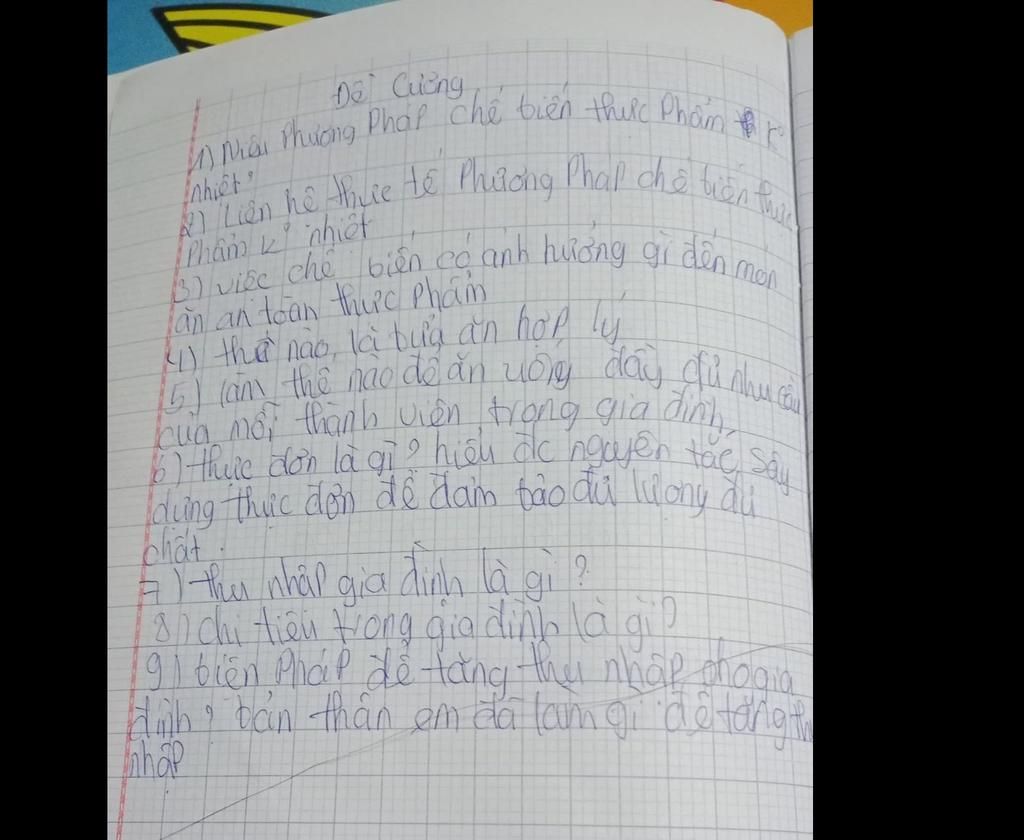 Đề Cương
1) Nêu Phương Pháp chế biến thực Phẩm K°
nhiệt?
2) Liên hệ thực tế Phương Pháp chế biến thực
Phẩm K° nhiệt
3) việc chế biến có ảnh hưởng gì đến món
ăn an toàn thực Phẩm
4) thế nào là bữa ăn hợp lý
5) làm thế nào để ăn uống đầy đủ nhu cầu
của mỗi thành viên trong gia đình
6) thực đơn là gì? hiểu đc nguyên tắc sây
dựng thực đơn để đảm bảo đủ lượng đủ
chất.
7) thu nhập gia đình là gì?
8) chi tiêu trong gia đình là gì?
9) biện Pháp để tăng thu nhập cho gia
đình? bản thân em đã làm gì để tăng thu
nhập